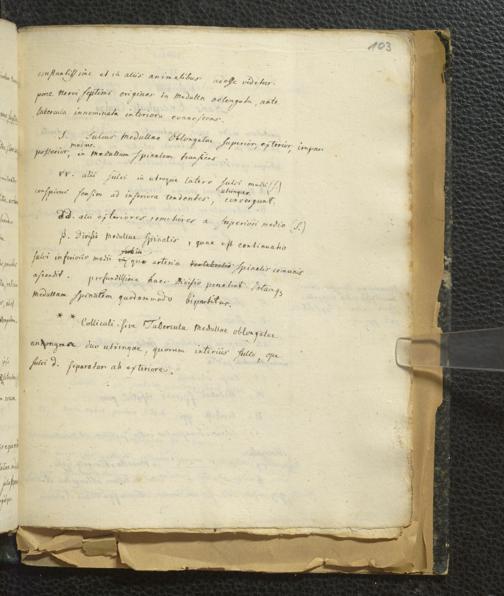 103
constantissime et in aliis animalibus adesse videtur.
pone nervi septimi originem in medulla oblongata, ante
tubercula innominata interiora evanescens.
S. Sulcus medullae oblongatae superior, exterior, impar
maior
posterior, in medullam spinalem transiens
γγ. alii sulci in utroque latere sulci medii (S)
utrinque
conspicui sensim ad inferiora tendentes, convergunt.
dd. alii exteriores remotiores a superiori medio (S.)
β. Divisio medullae spinalis, quae est continuatio
sulci inferioris medii in quo arteria spinalis communis
ascendit. profundissima haec divisio penetrat totamq
medullam spinalem quasimodo bipartitur.
** Colliculi sive Tubercula medullae oblongatae
duo utrinque, quorum interius sulci ope
sulci d. separatur ab exteriore.